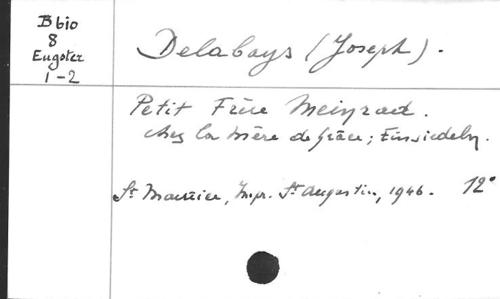 B bio
8
Eugster
1-2
Delabays (Joseph).
Petit Frère Meinrad.
chez la Mère de Grâce; Einsiedeln.
St Maurice, Impr. St Augustin, 1946. 12°